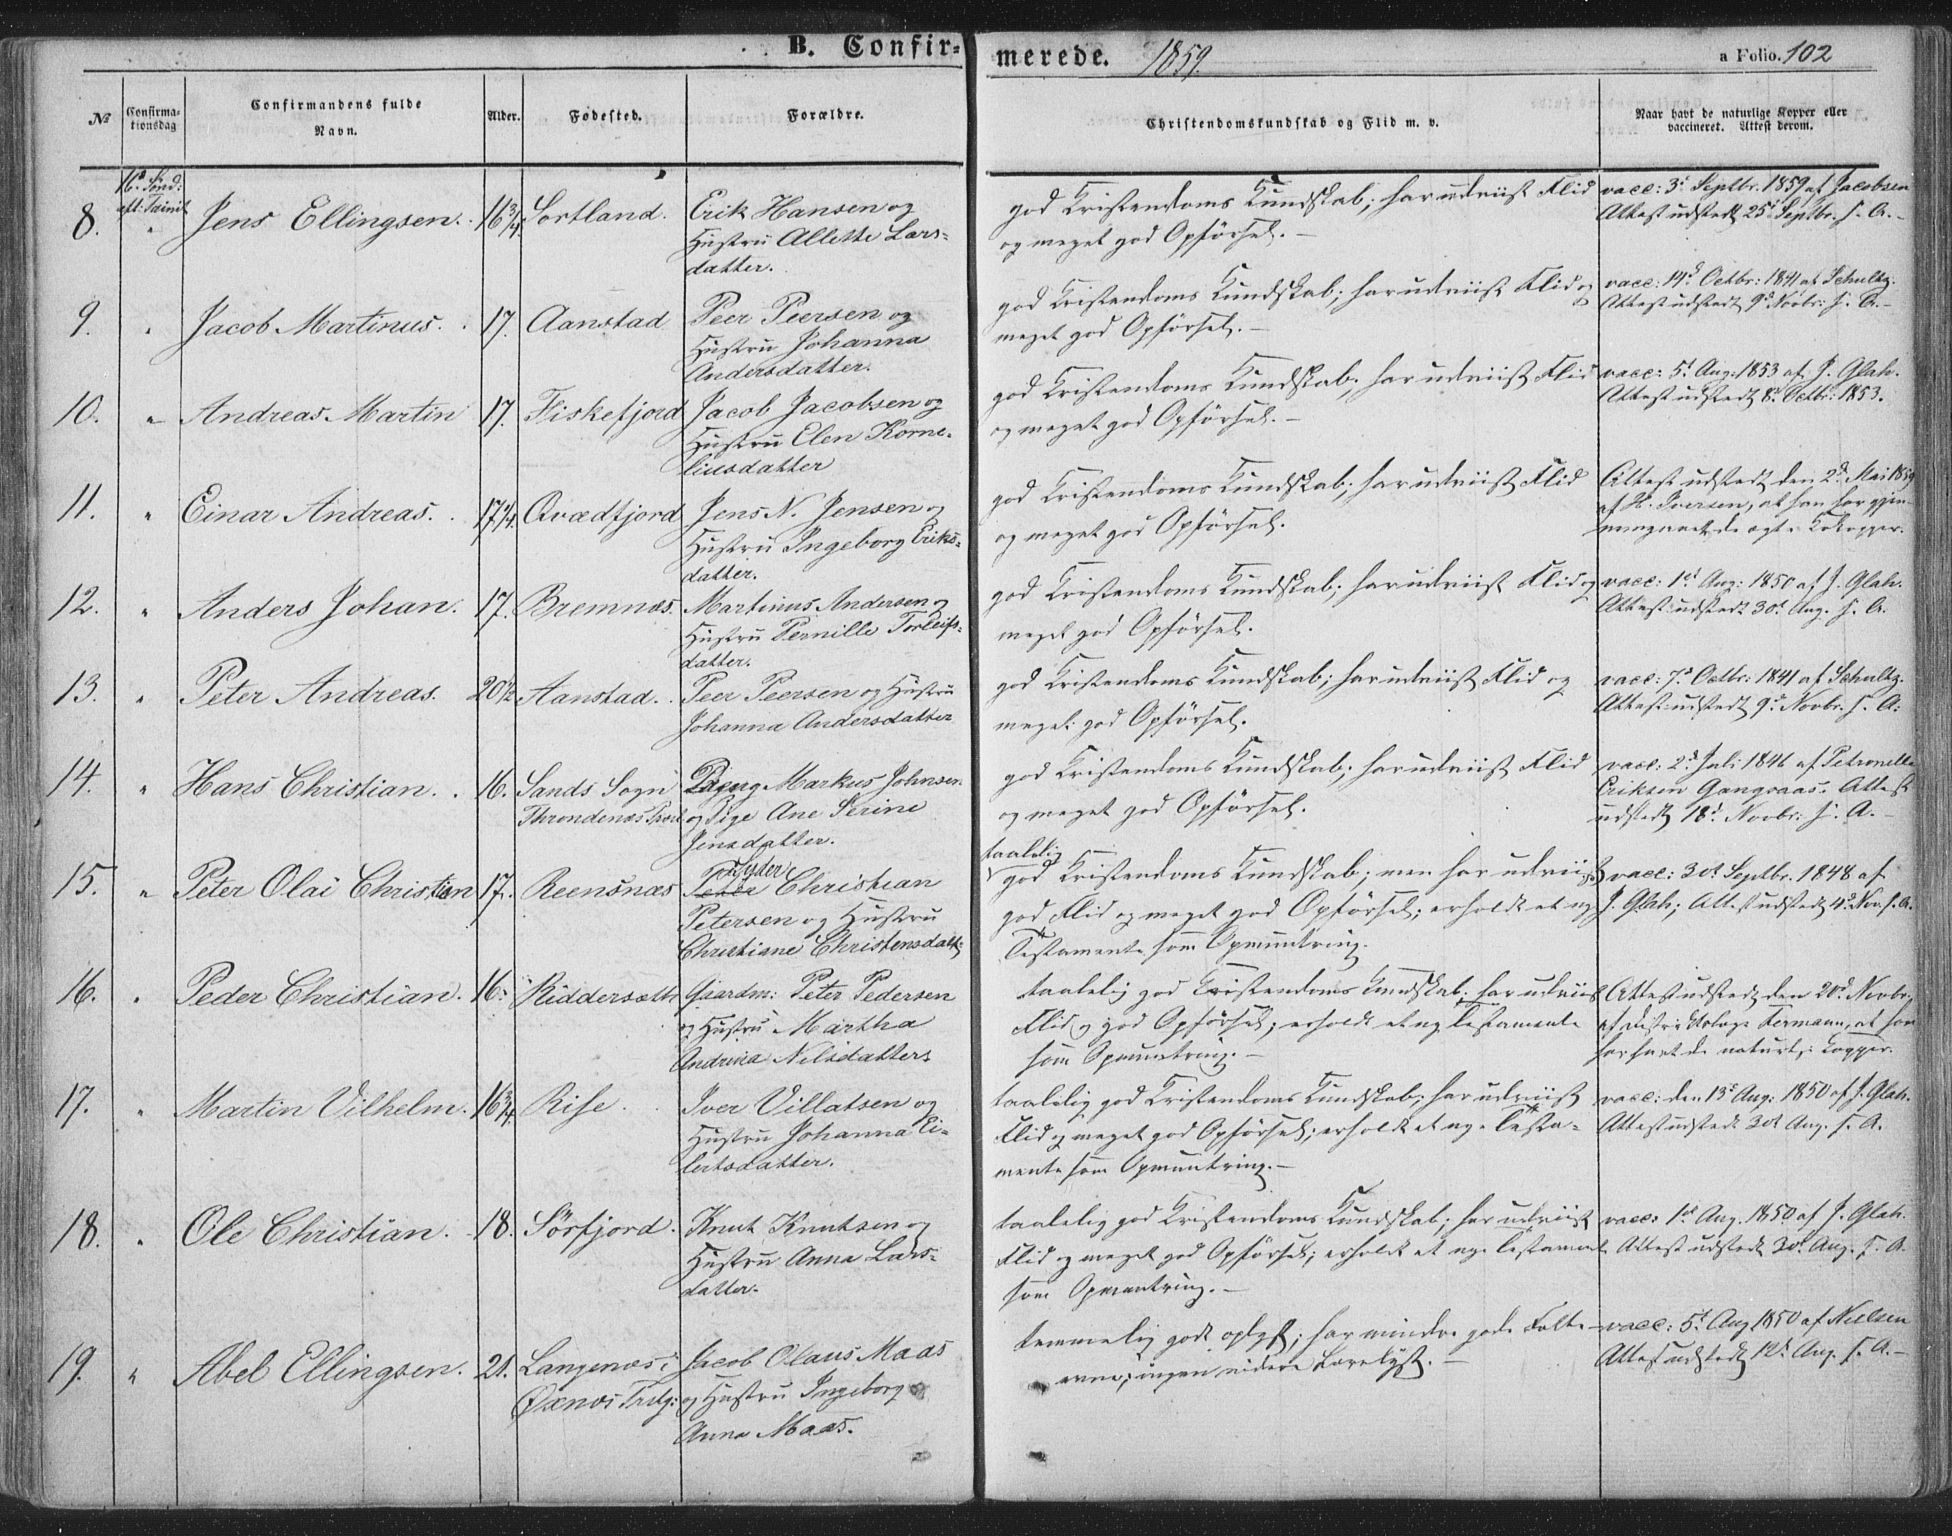 B. Confir-
merede. 1859.
a Folio. 102
№
Confirma-
tionsdag
Confirmandens fulde
Navn.
Alder.
Fødested.
Forældre.
Christendomskundskab og Flid m. v.
Naar havt de naturlige Kopper eller
vaccineret. Attest derom.
16d Sønd:
aft: Trinit
8. " Jens Ellingsen. 16 3/4 Sortland. Erik Hansen og
Hustru Allette Lars-
datter.
god Kristendoms Kundskab; har udviist Flid
og meget god Opførsel. –
vacc: 3d Septbr. 1859 af Jacobsen
Attest udstedt 25d Septbr. s. A. –
9. " Jacob Martinus. 17. Aanstad Peer Peersen og
Hustru Johanna
Andersdatter.
god Kristendoms Kundskab; har udviist Flid og
meget god Opførsel. –
vacc: 14d Octbr: 1841 af Schultz.
Attest udstedt 9d Novbr: s. A. –
10. " Andreas Martin 17. Fiskefjord Jacob Jacobsen og
Hustru Elen Korne-
liusdatter
god Kristendoms Kundskab; har udviist Flid
og meget god Opførsel. –
vacc: 5d Aug. 1853 af J. Glah.
Attest udstedt 8d Octbr: 1853.
11. " Einar Andreas. 17 1/4. Qvædfjord Jens N. Jensen og
Hustru Ingeborg Eriks-
datter.
god Kristendoms Kundskab; har udviist Flid
og meget god Opførsel.
Attest udstedt den 2d Mai 1859
af H. Iversen, at han har gjen-
nemgaaet de ægte Kokopper.
12. " Anders Johan. 17. Bremnæs. Martinus Andersen og
Hustru Pernille Torleifs-
datter.
god Kristendoms Kundskab; har udviist Flid og
meget god Opførsel.
vacc: 1d Aug: 1850 af J. Glah.
Attest udstedt 30d Aug. s. A.
13. " Peter Andreas. 20 1/2 Aanstad. Peer Peersen og Hustru
Johanna Andersdatter
god Kristendoms Kundskab; har udviist Flid og
meget god Opførsel.
vacc: 7d Octbr: 1841 af Schultz.
Attest udstedt 9d Novbr. s. A.
14. " Hans Christian. 16. Sands Sogn
Throndenæs Præst
Markus Johnsen
og Pige Ane Serine
Jensdatter.
god Kristendoms Kundskab; har udviist Flid
og meget god Opførsel.
vacc: 2d Juli 1846 af Petronelle
Eriksen Gangsaas. Attest
udstedt 18d Novbr: s. A. –
15. " Peter Olai Christian 17. Reensnæs Lyder
Peter Christian
Petersen og Hustru
Christiane Christensdatt:
taalelig
god Kristendoms Kundskab; men har udviist
god Flid og meget god Opførsel; erholdt et nyt
Testamente som Opmuntring.
vacc: 30d Septbr. 1848 af
J. Glah; Attest udstedt 4d Nov. s. A.
16. " Peder Christian. 16. Riddersæth Gaardm: Peter Pedersen
og Hustru Martha
Andrina Nilsdatter
taalelig god Kristendoms Kundskab, har udviist
Flid og god Opførsel; erholdt et nyt Testamente
som Opmuntring. –
Attest udstedt den 20d Novbr.
af Distriktslæge Kermann, at han
har havt de naturl: Kopper.
17. " Martin Vilhelm. 16 3/4. Rise. Iver Villatsen og
Hustru Johanna Ei-
lertsdatter.
taalelig god Kristendoms Kundskab; har udviist
Flid og meget god Opførsel; erholdt et nyt Testa-
mente som Opmuntring. –
vacc: den 13d Aug: 1850 af J. Glah.
Attest udstedt 30d Aug. s. A.
18. " Ole Christian. 18. Sörfjord. Knut Knutsen og
Hustru Anna Lars-
datter.
taalelig god Kristendoms Kundskab; har udviist
Flid og meget god Opførsel; erholdt et nyt Testament
som Opmuntring. –
vacc: 1d Aug. 1850 af J. Glah.
Attest udstedt 30d Aug. s. A.
19. " Abel Ellingsen. 21. Langenæs i
Öxnæs Prstg:
Jacob Olaus Maas
og Hustru Ingeborg
Anna Maas.
temmelig godt oplyst; har mindre gode Fatte-
evner; ingen videre Lærelyst. –
vacc: 5d Aug 1850 af Nielsen
Attest udstedt 12d Aug. s. A. –